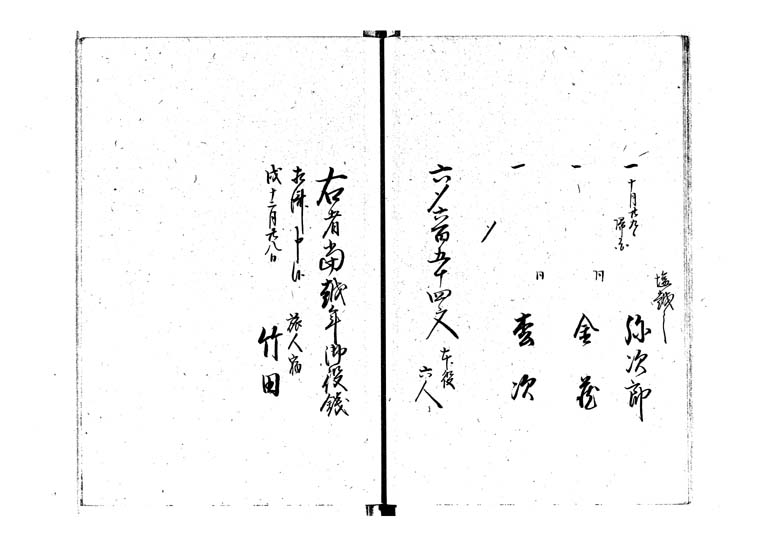 塩越し
一 十月廿九日 弥次郎
一 同 金蔵
一 同 幸次
〆
六〆六百五十四文 本役 六人
右者当越年御役銭
相済申候
戌十二月廿八日 旅人宿
竹田